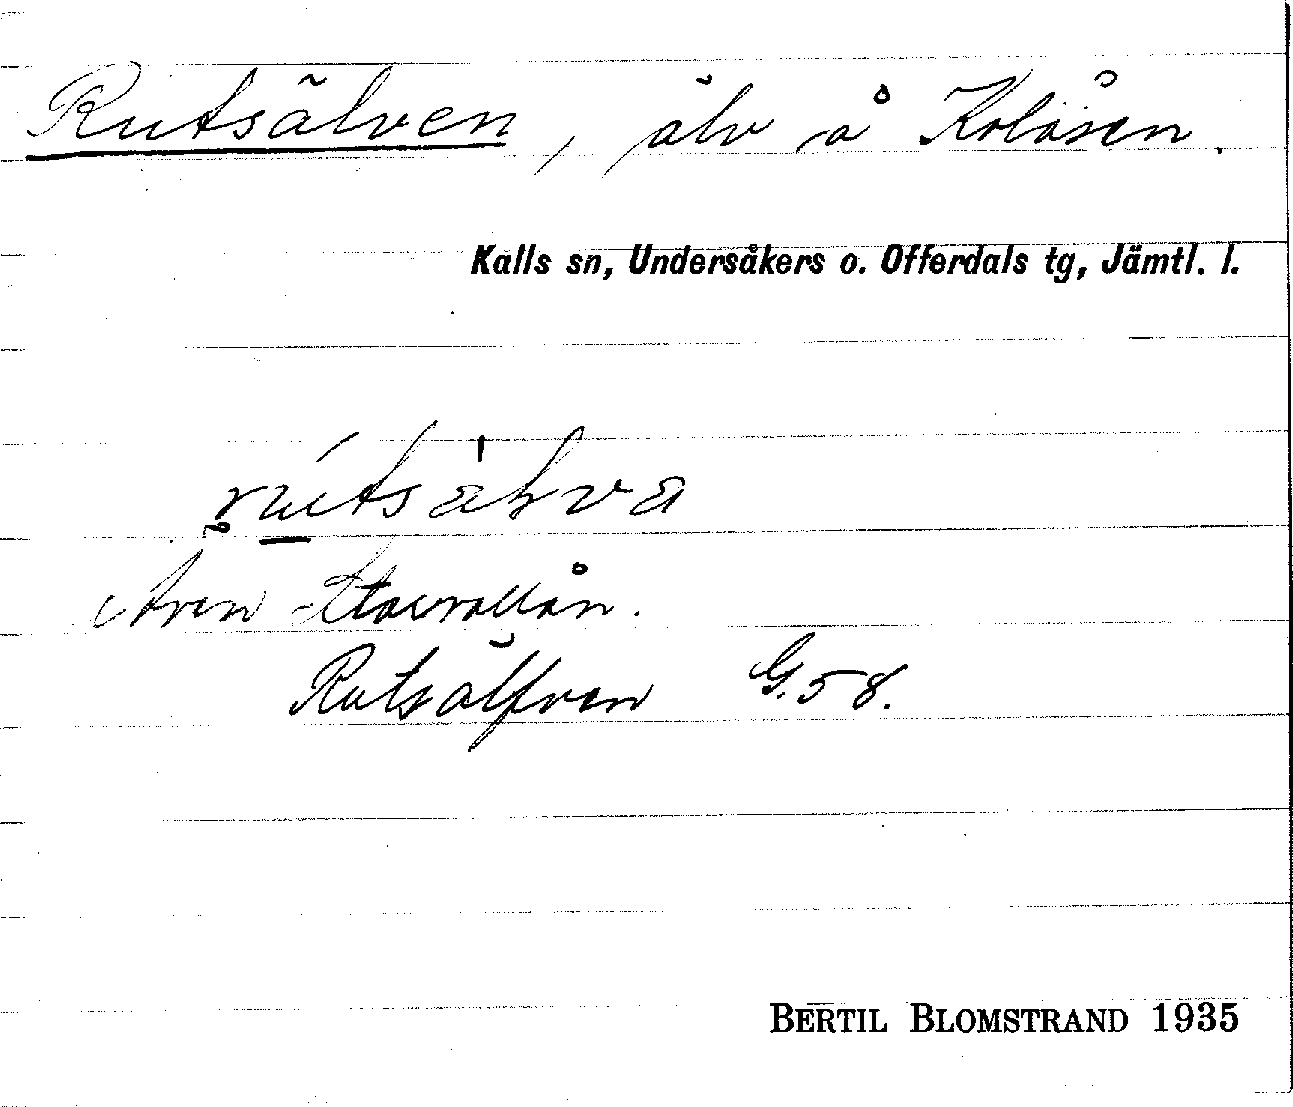 Rutsälven, älv å Kolåsen.
Kalls sn, Undersåkers o. Offerdals tg, Jämtl. l.
Även
Rutsälfven G. 58.
BERTIL BLOMSTRAND 1935